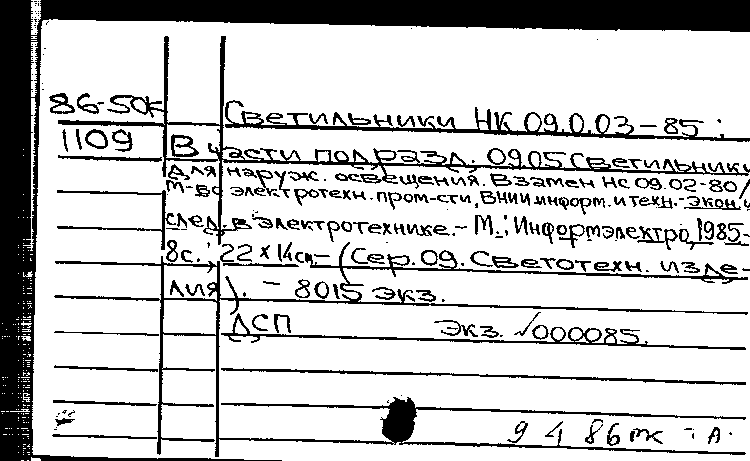 86-50к
Светильники НК 09.0.03-85 :
1109
В части подразд. 09.05 Светильники
для наруж. освещения. Взамен НС 09.02-80/
М-во электротехн. пром-сти, ВНИИ информ. и техн.-экон. и
след. в электротехнике.- М.: Информэлектро, 1985-
8с.; 22 × 14см- (Сер. 09. Светотехн. изде-
лия). - 8015 экз.
ДСП Экз. √000085.
9 4 86